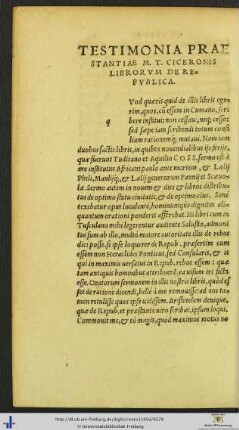 TESTIMONIA PRAE
STANTIAE M. T. CICERONIS
LIBRORVM DE RE-
PVBLICA.
Vod quæris quid de illis libris ege-
rim, quos, cũ essem in Cumano, scri
q
bere institui: non cessaui, neq; cesso:
sed sæpe iam scribendi totum consi
lium rationemq́; mutaui. Nam iam
duobus factis libris, in quibus nouendialibus ijs ferijs,
quæ fuerunt Tuditano et Aquilio COSS. sermo est à
me institutus Africani paulo ante mortem, & Lælij
Phili, Manilijq́;, & Lælij generorum Fannij et Scæuo
læ. Sermo autem in nouem & dies & libros distribu
tus de optimo statu ciuitatis, & de optimo ciue. Sanè
texebatur opus luculenter, hominumq́; dignitas ali
quantum orationi ponderis afferebat. Hi libri cum in
Tusculano mihi legerentur audiente Salustio, admoni
tus sum ab illo, multo maiore autoritate illis de rebus
dici posse, si ipse loquerer de Repub. præsertim cum
essem non Heraclides Ponticus, sed Consularis, & is
qui in maximis uersatus in Repub. rebus essem: quæ
tam antiquis hominibus attribuerem, ea uisum iri ficta
esse. Oratorum sermonem in illis nostris libris, quòd es
set de ratione dicendi, bellè à me remouisse: ad eos ta-
men retulisse quos ipse uidissem. Aristotelem denique,
quæ de Repub. et præstante uiro scribat, ipsum loqui.
Commouit me, & eò magis, quòd maximos motus no
http://dl.ub.uni-freiburg.de/diglit/cicero1545/0278
© Universitätsbibliothek Freiburg